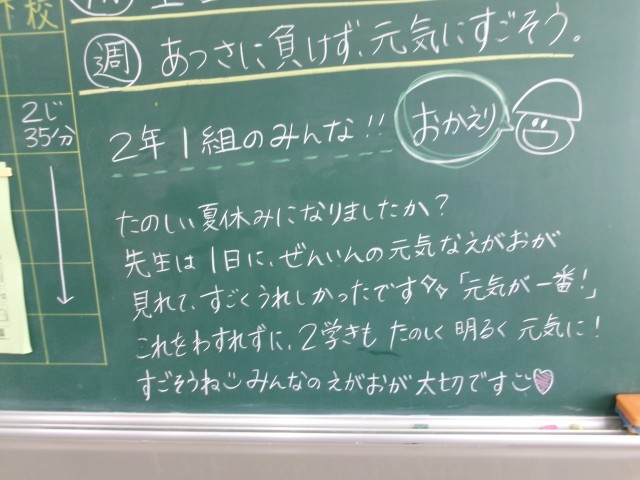 下校
週 あつさに負けず、元気にすごそう。
2じ
35分
2年1組のみんな!!
おかえり
たのしい夏休みになりましたか?
先生は1日に、ぜんいんの元気なえがおが
見れて、すごくうれしかったです✨「元気が一番!」
これをわすれずに、2学きも たのしく 明るく 元気に!
すごそうね みんなの えがおが 大切です♡